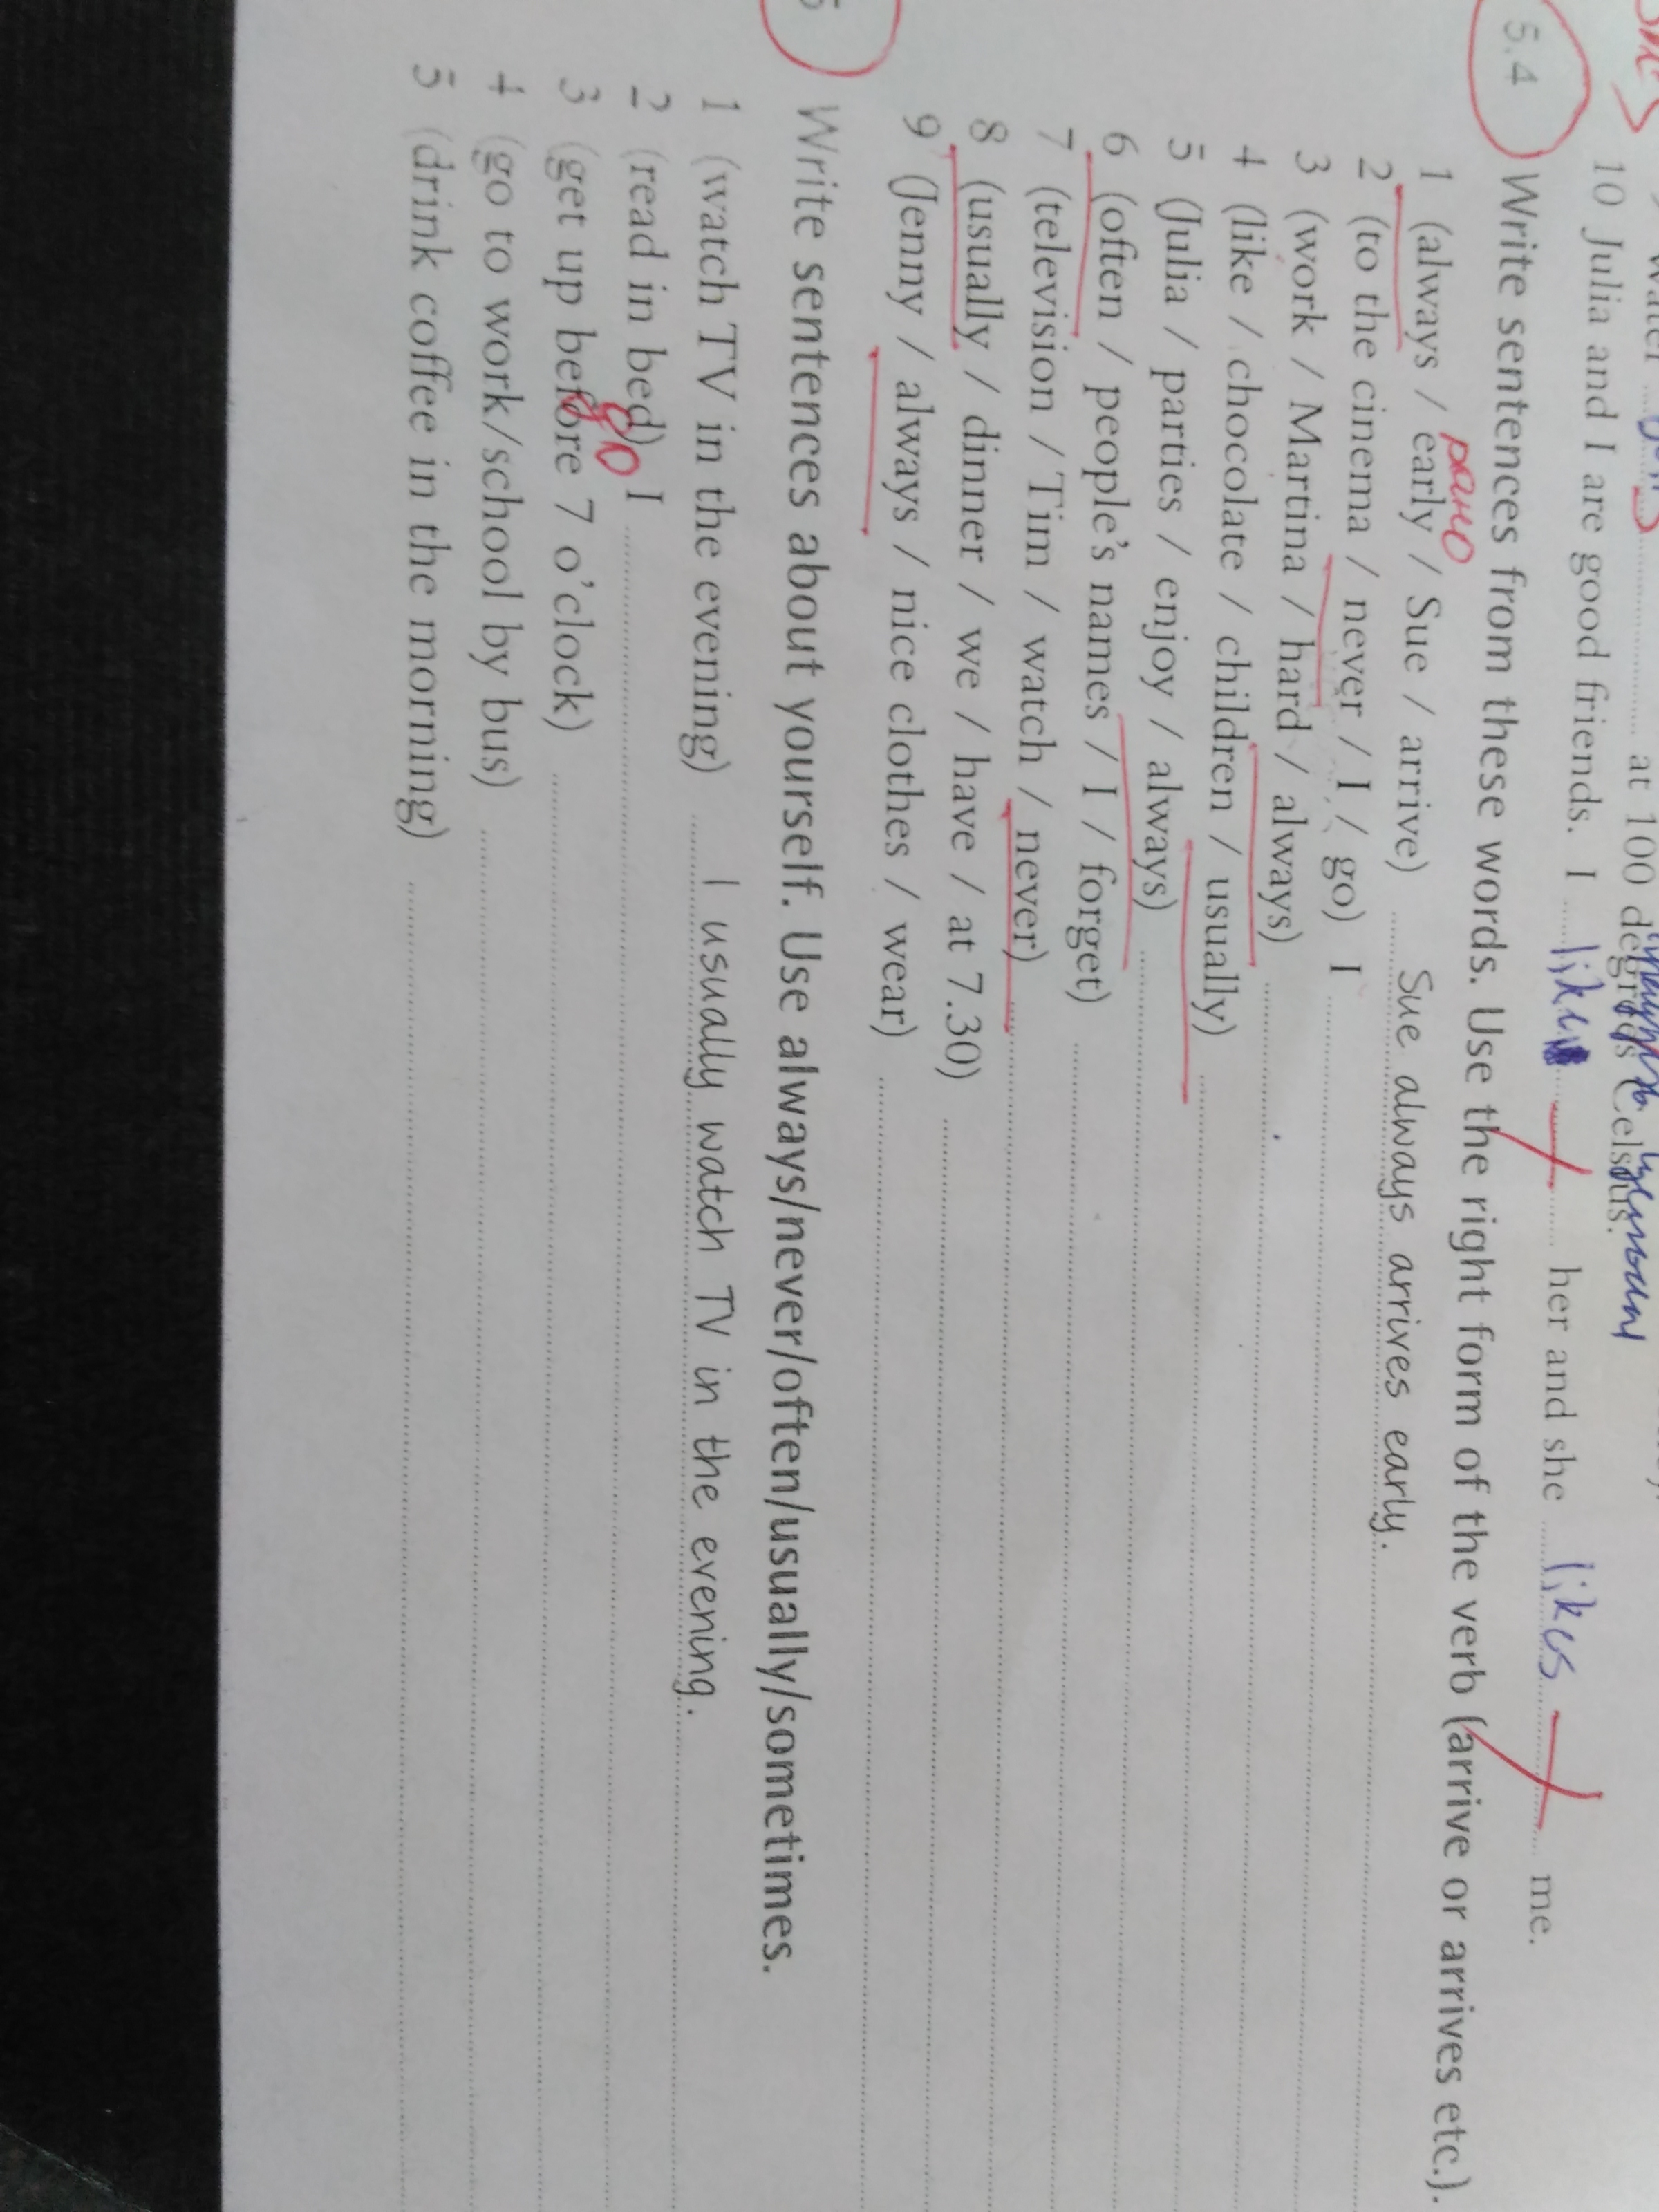 at 100 degrees Celsius.
10 Julia and I are good friends. I like her and she likes me.
5.4 Write sentences from these words. Use the right form of the verb (arrive or arrives etc.).
рано
1 (always / early / Sue / arrive) Sue always arrives early.
2 (to the cinema / never / I / go) I
3 (work / Martina / hard / always)
4 (like / chocolate / children / usually)
5 (Julia / parties / enjoy / always)
6 (often / people's names / I / forget)
7 (television / Tim / watch / never)
8 (usually / dinner / we / have / at 7.30)
9 (Jenny / always / nice clothes / wear)
Write sentences about yourself. Use always/never/often/usually/sometimes.
1 (watch TV in the evening) I usually watch TV in the evening.
2 (read in bed) I
до
3 (get up before 7 o'clock)
4 (go to work/school by bus)
5 (drink coffee in the morning)